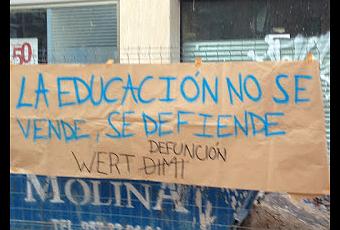 50
LA EDUCACIÓN NO SE
VENDE, SE DEFIENDE
DEFUNCIÓN
WERT DIMI
MOLINA